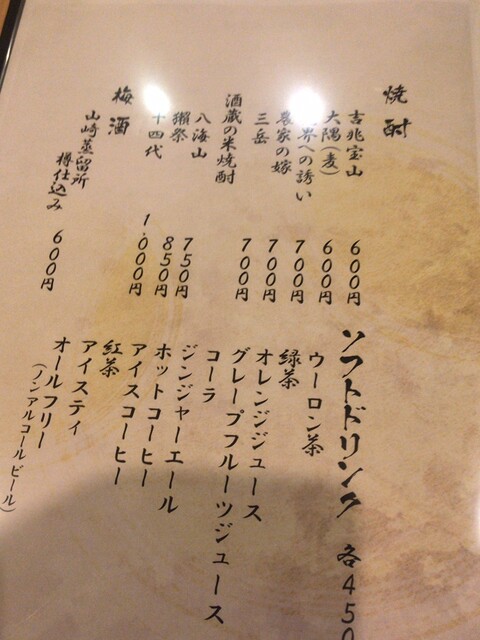 焼酎
吉兆宝山 600円
大隅(麦) 600円
界への誘い 700円
農家の嫁 700円
三岳 700円
酒蔵の米焼酎
八海山 750円
獺祭 850円
十四代 1,000円
梅酒
山崎蒸留所
樽仕込み 600円
ソフトドリンク 各450
ウーロン茶
緑茶
オレンジジュース
グレープフルーツジュース
コーラ
ジンジャーエール
ホットコーヒー
アイスコーヒー
紅茶
アイスティ
オールフリー
(ノンアルコールビール)